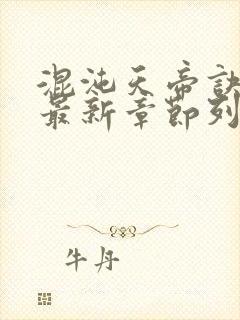 混沌天帝诀
最新章节列
牛丹